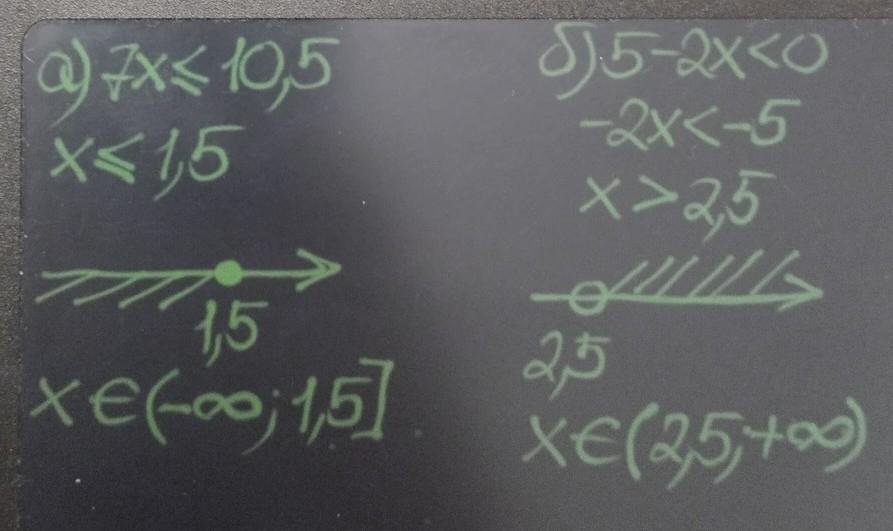 а) 7x ⩽ 10,5
x ⩽ 1,5
1,5
x ∈ (-∞; 1,5]
б) 5-2x<0
-2x<-5
x > 2,5
2,5
x ∈ (2,5; +∞)